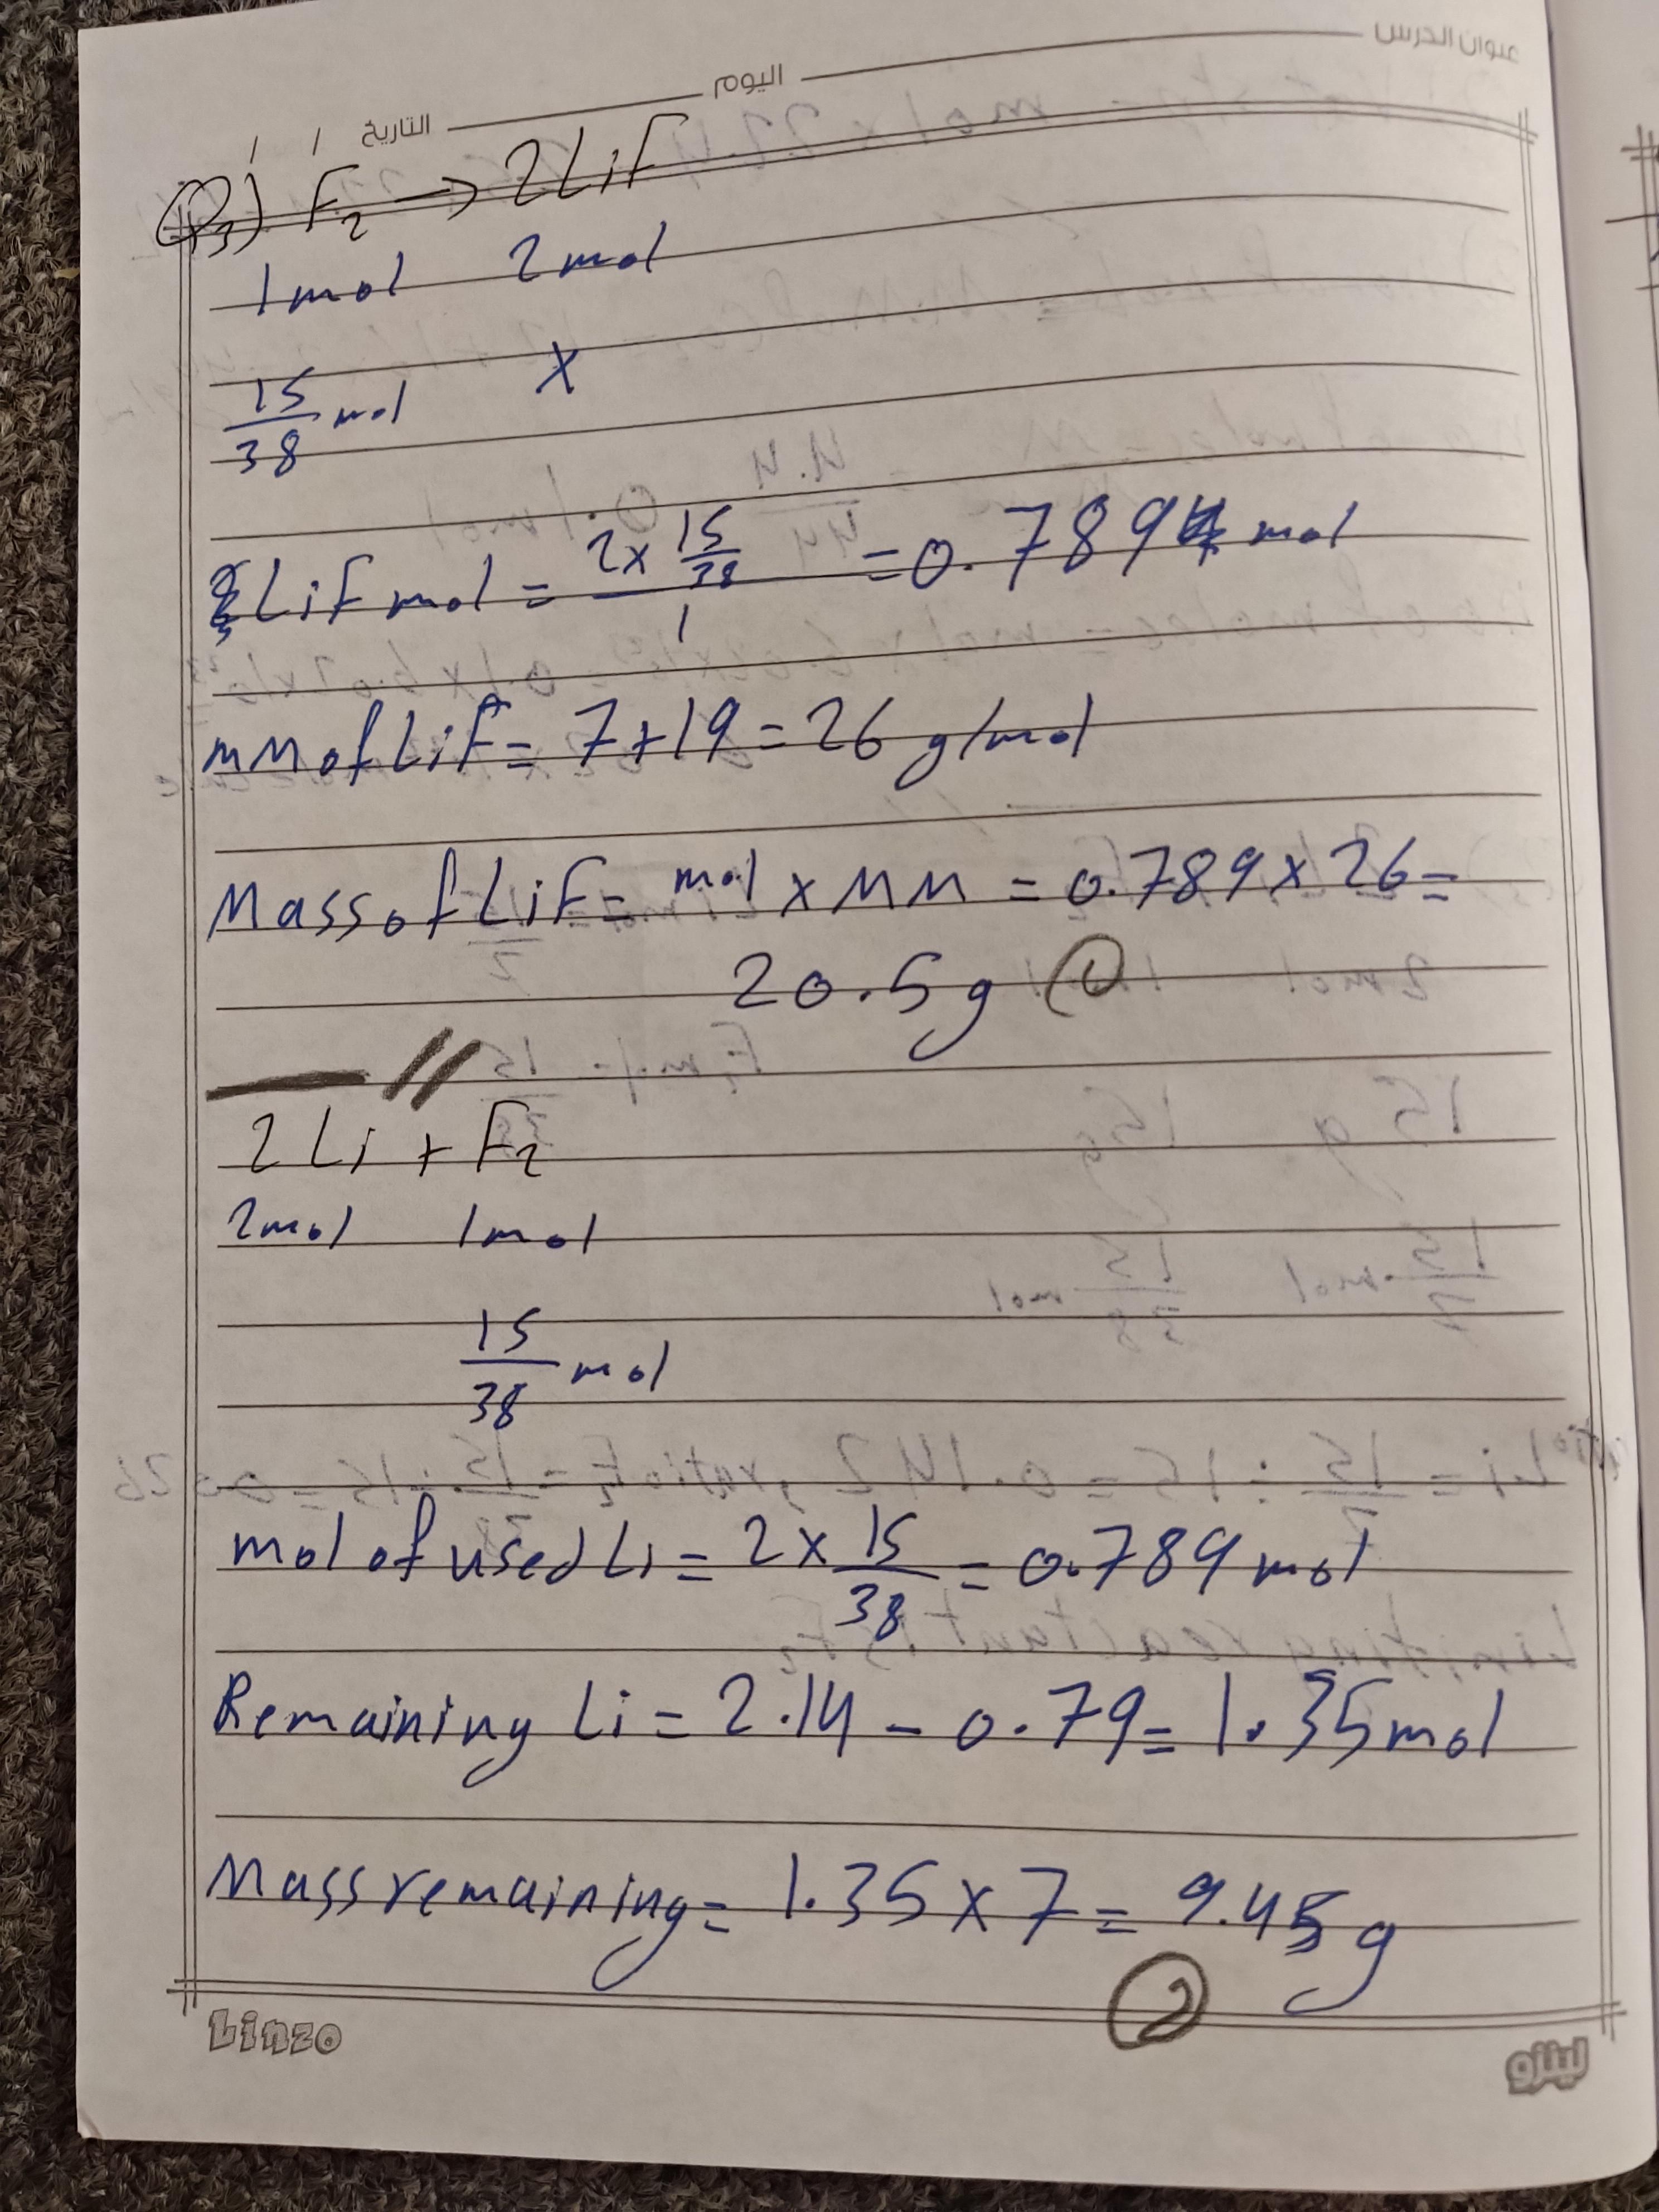 عنوان الدرس
اليوم
التاريخ / /
Q3) F₂ → 2LiF
1mol 2mol
15/38 mol X
LiF mol = (2x 15/38)/1 = 0.789 mol
MM of LiF = 7+19 = 26 g/mol
Mass of LiF = mol x MM = 0.789 x 26 =
20.5g ①
2Li + F₂
2mol 1mol
15/38 mol
mol of used Li = 2 x 15/38 = 0.789 mol
Remaining Li = 2.14 - 0.79 = 1.35 mol
Mass remaining = 1.35 x 7 = 9.45 g
②
Linzo
لينزو